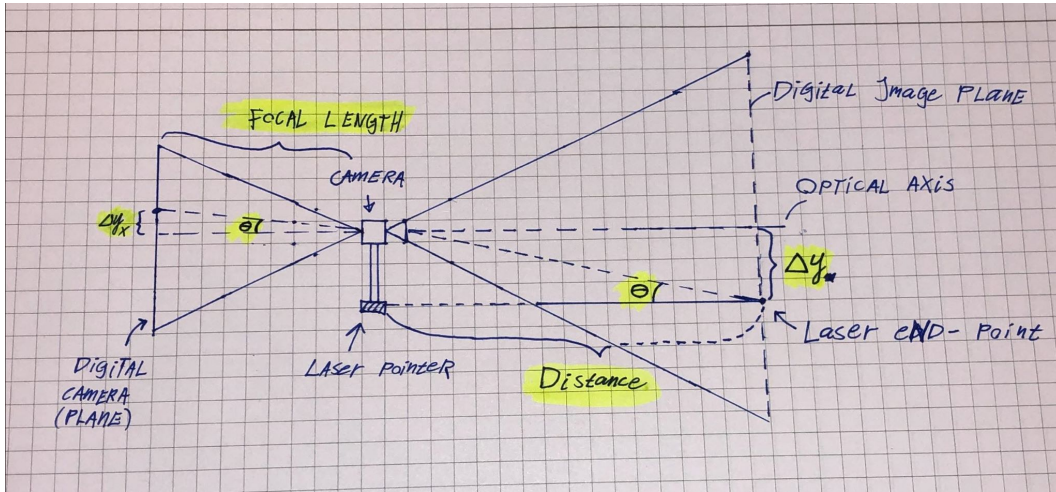 FOCAL LENGTH
CAMERA
Digital Image PLANE
OPTICAL AXIS
Δyx
Θ
Θ
Δy
Laser END-Point
DigiTAL
CAMERA
(PLANE)
LAser PointeR
Distance